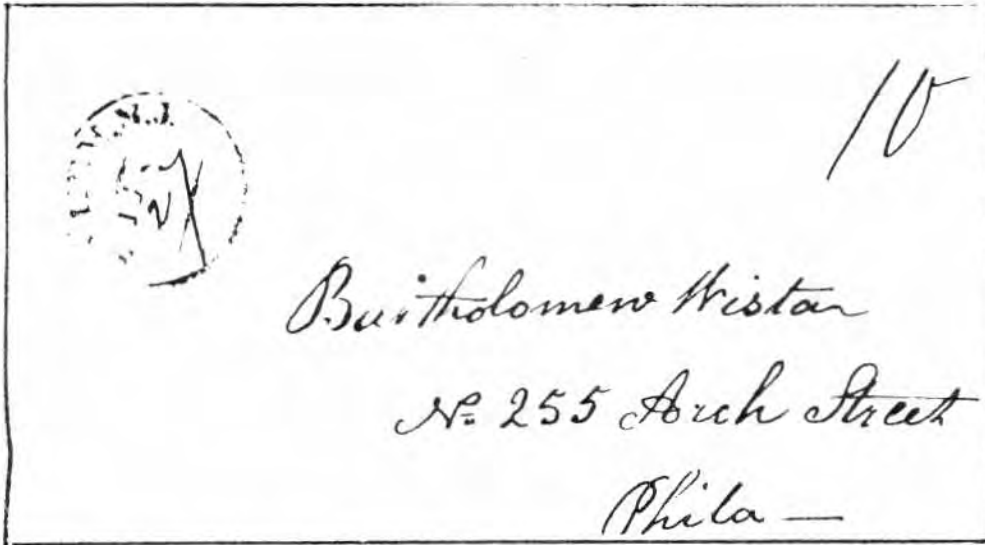 N.J.
10
Bartholomew Wistar
No. 255 Arch Street
Phila —